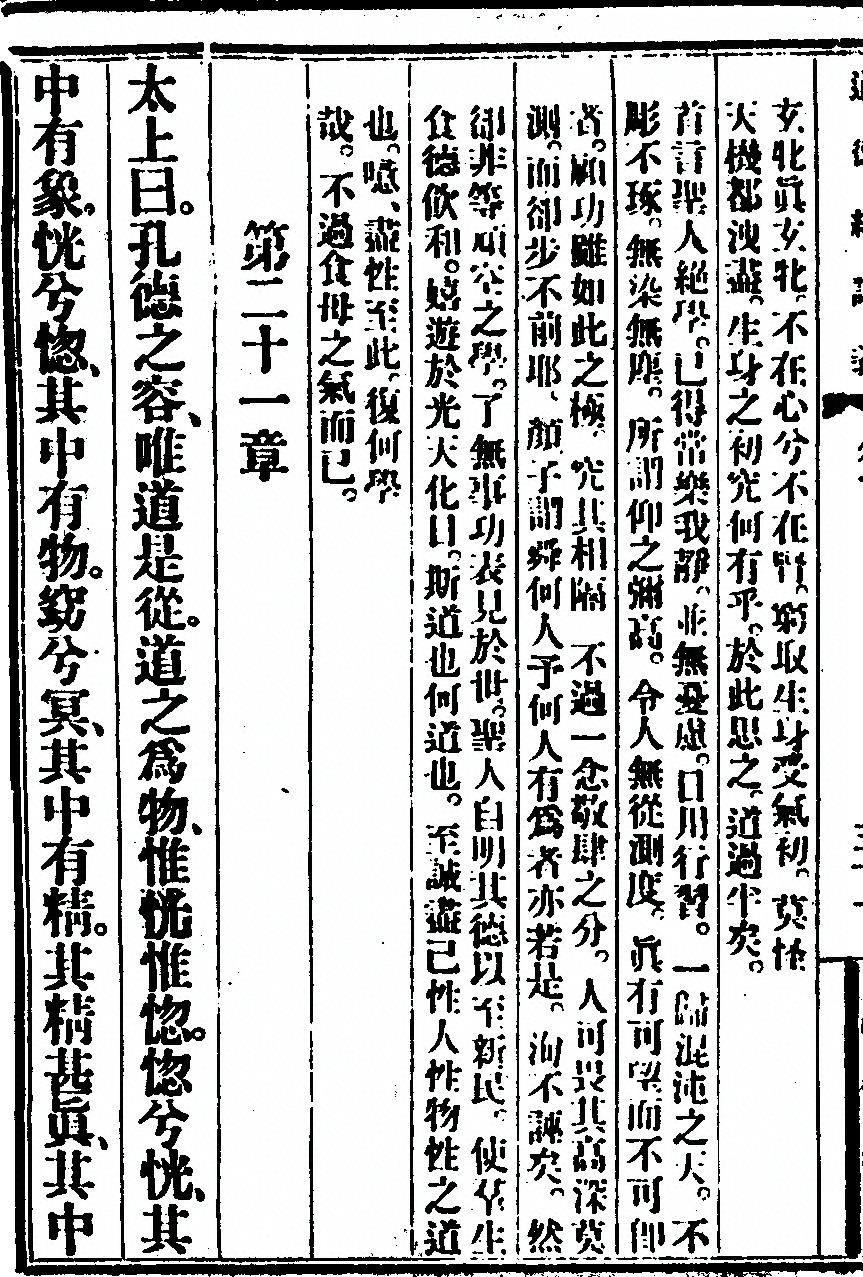 道德經講義
玄牝眞玄牝。不在心兮不在腎。窮取生身受氣初。莫怪
天機都洩盡。生身之初究何有乎。於此思之。道過半矣。
首言聖人絕學。已得常樂我靜。並無憂慮。日用行習。一歸混沌之天。不
彫不琢。無染無塵。所謂仰之彌高。令人無從測度。眞有可望而不可卽
者。顧功雖如此之極。究其相隔 不過一念敬肆之分。人可畏其高深莫
測。而卻步不前耶、顏子謂舜何人予何人有爲者亦若是。洵不誣矣。然
卻非等頑空之學。了無事功表見於世。聖人自明其德以至新民。使羣生
食德飮和。嬉遊於光天化日。斯道也何道也。至誠盡己性人性物性之道
也。噫、盡性至此。復何學
哉。不過食母之氣而已。
第二十一章
太上曰。孔德之容、唯道是從。道之爲物、惟恍惟惚。惚兮恍、其
中有象。恍兮惚、其中有物。窈兮冥、其中有精。其精甚眞、其中